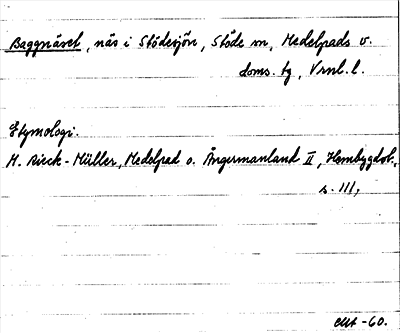 Baggnäset, näs i Stödesjön, Stöde sn, Medelpads v.
doms. tg, Vrnl. l.
Etymologi.
M. Rieck-Müller, Medelpad o. Ångermanland II, Hembygdsb.,
s. 111,
-60.